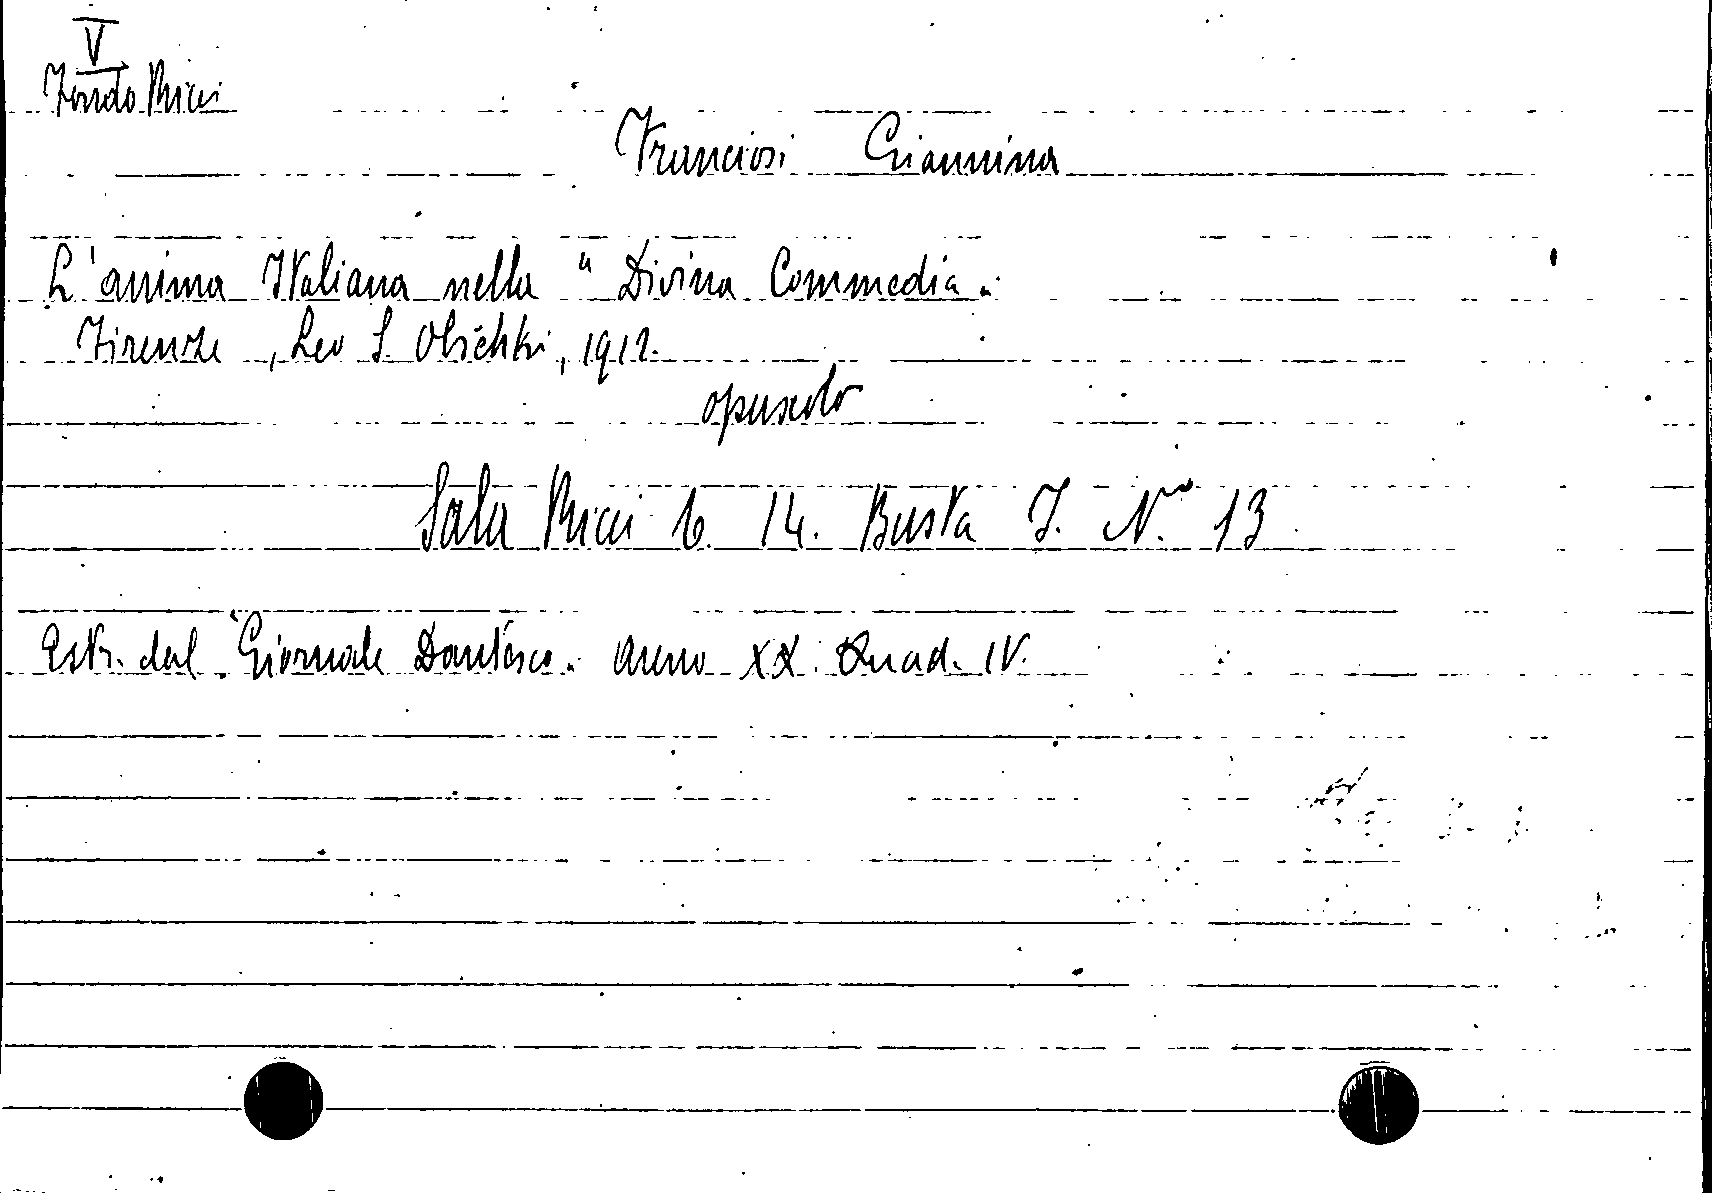 V
Fondo Ricci
Franciosi Giannina
L'anima Italiana nella "Divina Commedia".
Firenze, Leo S. Olschki, 1912.
opuscolo
Sala Ricci 6. 14. Busta I. N.º 13
Estr. dal "Giornale Dantesco". Anno XX. Quad. IV.